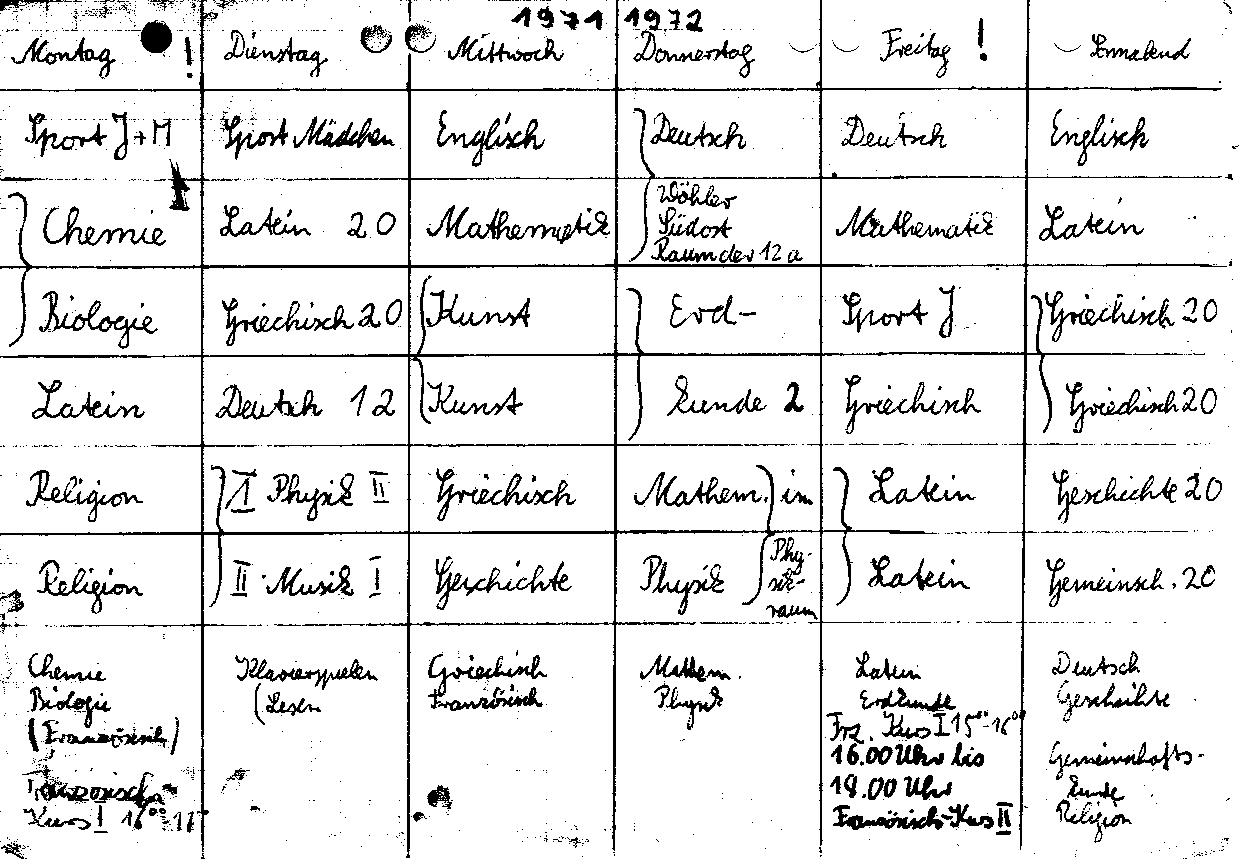 1971 1972
Montag ! Dienstag Mittwoch Donnerstag Freitag ! Sonnabend
Sport J+M Sport Mädchen Englisch Deutsch Deutsch Englisch
Chemie Latein 20 Mathematik Wöhler Südost Raum der 12a Mathematik Latein
Biologie Griechisch 20 Kunst Erd- Sport J Griechisch 20
Latein Deutsch 12 Kunst kunde 2 Griechisch Griechisch 20
Religion I Physik II Griechisch Mathem. im Latein Geschichte 20
Religion II Musik I Geschichte Physik Phy- sik- raum Latein Gemeinsch. 20
Chemie Klavierspielen Griechisch Mathem. Latein Deutsch
Biologie (Lesen Französisch Physik Erdkunde Geschichte
(Französisch) Frz. Kurs I 15°°-16°°
16.00 Uhr bis Gemeinschafts-
Französisch 18.00 Uhr kunde
Kurs I 16°° Französisch-Kurs II Religion